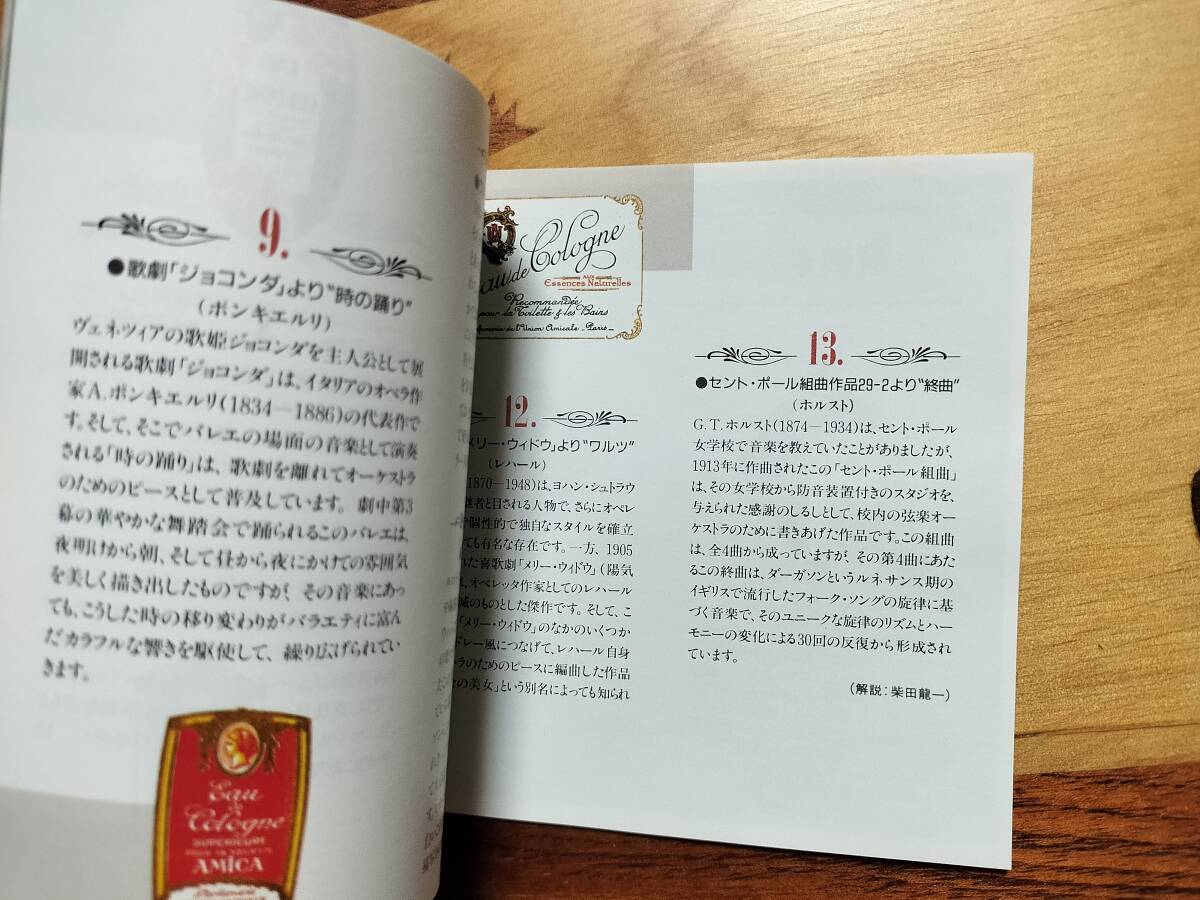 9.
●歌劇「ジョコンダ」より“時の踊り”
(ポンキエルリ)
ヴェネツィアの歌姫ジョコンダを主人公として展
開される歌劇「ジョコンダ」は、イタリアのオペラ作
家A.ポンキエルリ(1834—1886)の代表作で
す。そして、そこでバレエの場面の音楽として演奏
される「時の踊り」は、歌劇を離れてオーケストラ
のためのピースとして普及しています。劇中第3
幕の華やかな舞踏会で踊られるこのバレエは、
夜明けから朝、そして昼から夜にかけての雰囲気
を美しく描き出したものですが、その音楽にあっ
ても、こうした時の移り変わりがバラエティに富ん
だカラフルな響きを駆使して、繰り広げられてい
きます。
Eau
de
Cologne
SUPERIEURE
POUR LA TOILETTE
AMICA
Eau de Cologne
AUX
Essences Naturelles
Recommandée
pour la Toilette & les Bains
de l'Union Amicale _ Paris_
12.
メリー・ウィドウ」より“ワルツ”
(レハール)
1870-1948)は、ヨハン・シュトラウ
者と目される人物で、さらにオペレ
個性的で独自なスタイルを確立
ても有名な存在です。一方、1905
れた喜歌劇「メリー・ウィドウ」(陽気
は、オペレッタ作家としてのレハール
のものとした傑作です。そして、こ
「メリー・ウィドウ」のなかのいくつか
ドレー風につなげて、レハール自身
トラのためのピースに編曲した作品
の美女」という別名によっても知られ
13.
●セント・ポール組曲作品29-2より“終曲”
(ホルスト)
G.T.ホルスト(1874—1934)は、セント・ポール
女学校で音楽を教えていたことがありましたが、
1913年に作曲されたこの「セント・ポール組曲」
は、その女学校から防音装置付きのスタジオを、
与えられた感謝のしるしとして、校内の弦楽オー
ケストラのために書きあげた作品です。この組曲
は、全4曲から成っていますが、その第4曲にあた
るこの終曲は、ダーガソンというルネサンス期の
イギリスで流行したフォーク・ソングの旋律に基
づく音楽で、そのユニークな旋律のリズムとハー
モニーの変化による30回の反復から形成され
ています。
(解説:柴田龍一)